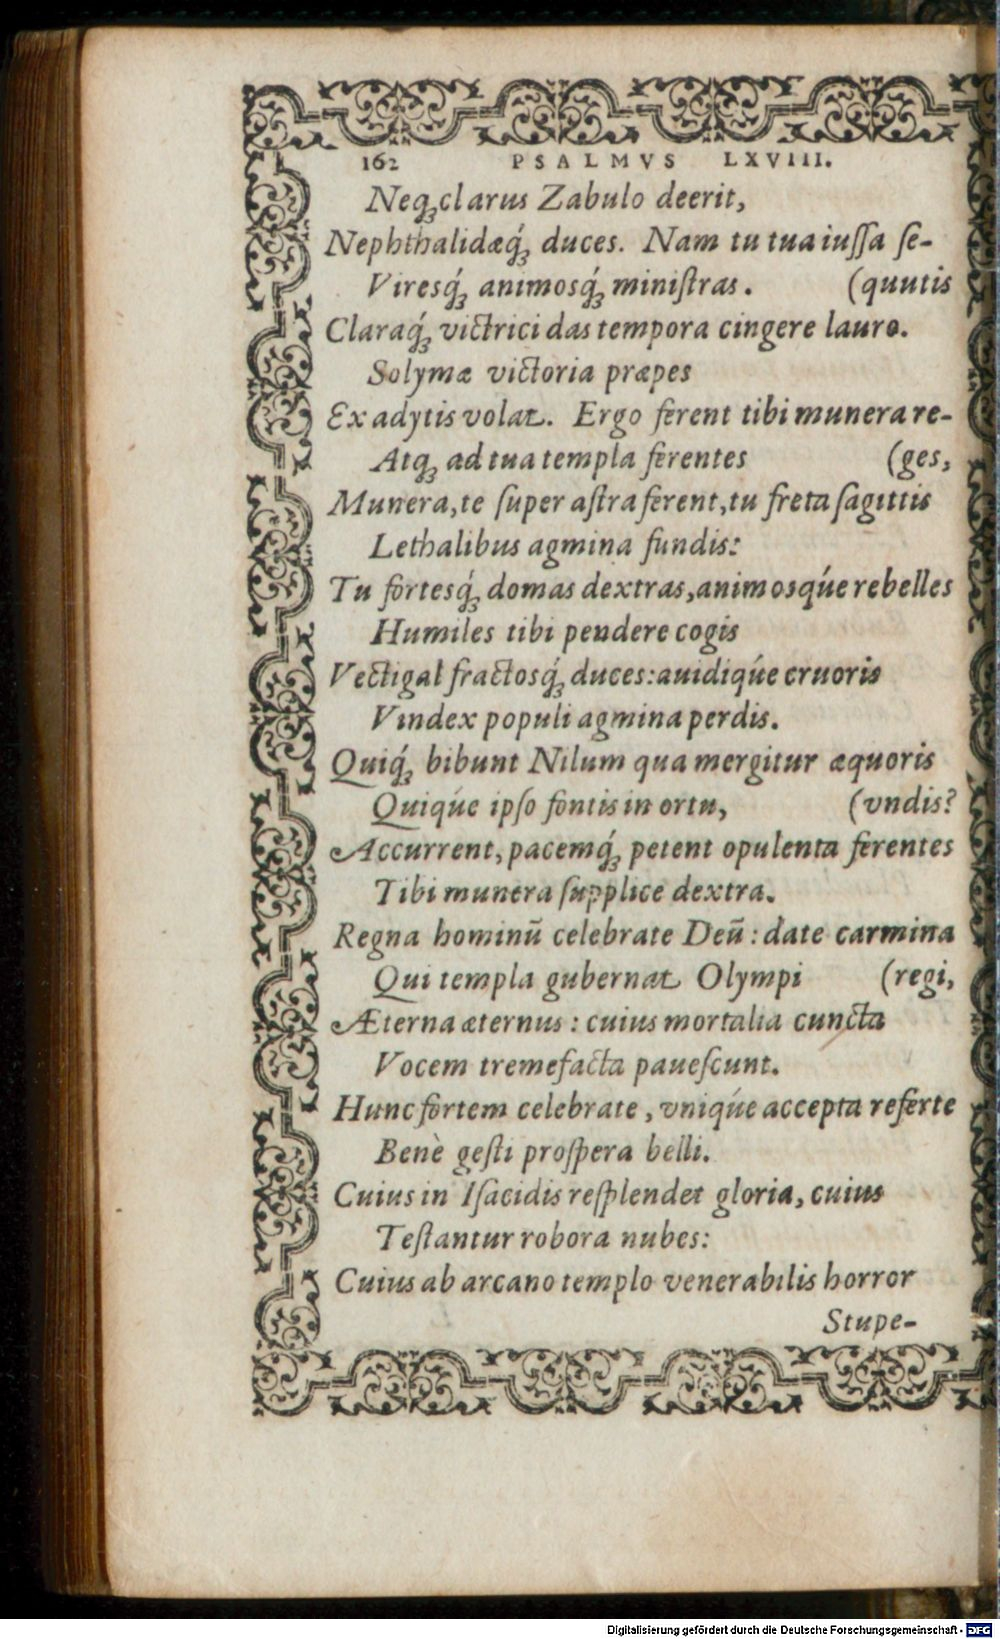 162 PSALMVS LXVIII.
Neqꝫ clarus Zabulo deerit,
Nephthalidæq́ꝫ duces. Nam tu tua iuſſa ſe-
Viresq́ꝫ animosq́ꝫ miniſtras. (quutis
Claraq́ꝫ victrici das tempora cingere lauro.
Solymæ victoria præpes
Ex adytis volat. Ergo ferent tibi munera re-
Atqꝫ ad tua templa ferentes (ges,
Munera, te ſuper aſtra ferent, tu freta ſagittis
Lethalibus agmina fundis:
Tu fortesq́ꝫ domas dextras, animosq́ue rebelles
Humiles tibi pendere cogis
Vectigal fractosq́ꝫ duces: auidiq́ue cruoris
Vindex populi agmina perdis.
Quiq́ꝫ bibunt Nilum qua mergitur æquoris
Quiq́ue ipſo fontis in ortu, (vndis?
Accurrent, pacemq́ꝫ petent opulenta ferentes
Tibi munera ſupplice dextra.
Regna hominū celebrate Deū: date carmina
Qui templa gubernat Olympi (regi,
Æterna æternus: cuius mortalia cuncta
Vocem tremefacta paueſcunt.
Hunc fortem celebrate, vniq́ue accepta referte
Benè geſti proſpera belli.
Cuius in Iſacidis reſplendet gloria, cuius
Teſtantur robora nubes:
Cuius ab arcano templo venerabilis horror
Stupe-
Digitalisierung gefördert durch die Deutsche Forschungsgemeinschaft - DFG